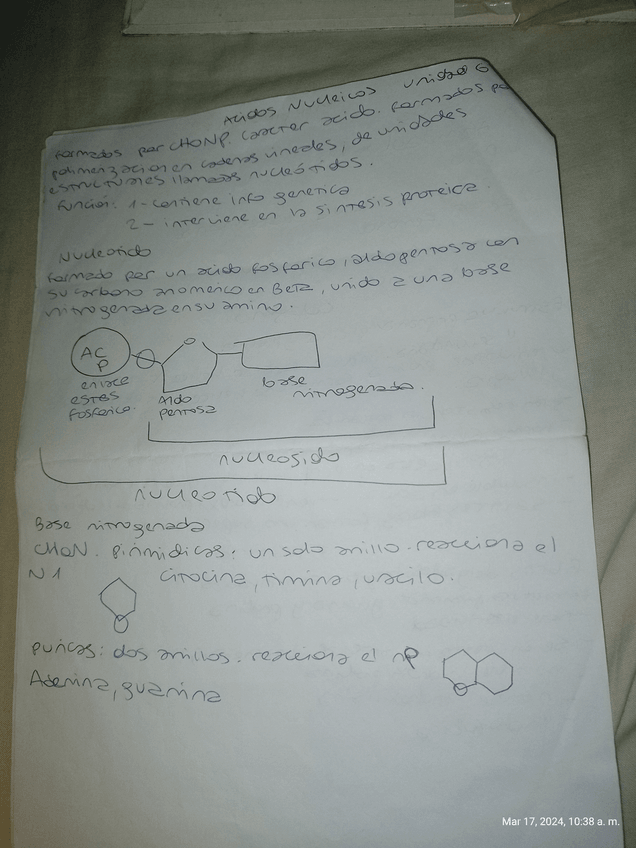 Acidos Nucleicos unidad 6
formados por CHONP. Caracter acido. formados por
polimerizacion en cadenas lineales, de unidades
estructurales llamadas nucleótidos.
Funcion: 1- contiene info genetica
2- interviene en la sintesis proteica.
Nucleotido
formado por un acido fosforico, aldopentosa con
su carbono anomerico en Beta, unido a una base
nitrogenada en su amino.
AC
P
enlace
ester
fosforico.
Aldo
pentosa
base
nitrogenada.
nucleosido
nucleotido
Base nitrogenada
CHON. Pirimidicas: un solo anillo. reacciona el
N1 citocina, timina, uracilo.
Puricas: dos anillos. reacciona el
Adenina, guanina
Mar 17, 2024, 10:38 a. m.